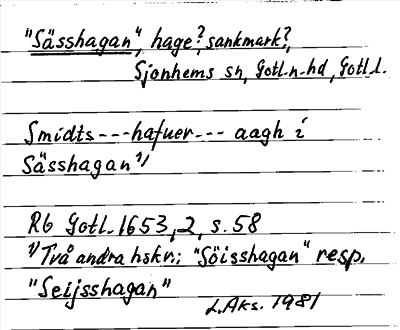 "Sässhagan", hage?, sankmark?,
Sjonhems sn, Gotl. n. hd, Gotl. l.
Smidts --- hafuer --- aagh i
Sässhagan 1)
Rb Gotl. 1653, 2, s. 58
1) Två andra hskr.: "Söisshagan" resp.
"Seijsshagan"
L. Aks. 1981